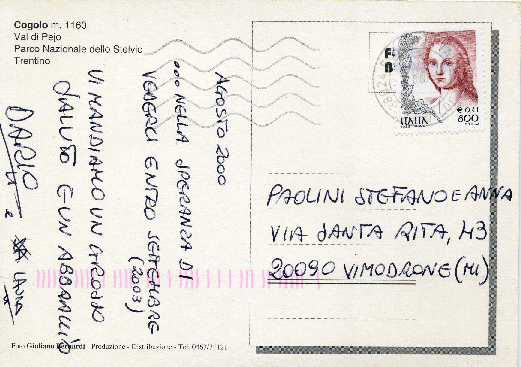 Cogolo m. 1160
Val di Pejo
Parco Nazionale dello Stelvio
Trentino
AGOSTO 2000
... NELLA SPERANZA DI
VEDERCI ENTRO SETTEMBRE
(2003)
VI MANDIAMO UN GROSSO
SALUTO E UN ABBRACCIO
DARIO
e LAURA
ITALIA
€ 0,41
800
PAOLINI STEFANO E ANNA
VIA SANTA RITA, 43
20090 VIMODRONE (MI)
Foto Giuliano Bernardi - Produzione - Distribuzione - Tel.